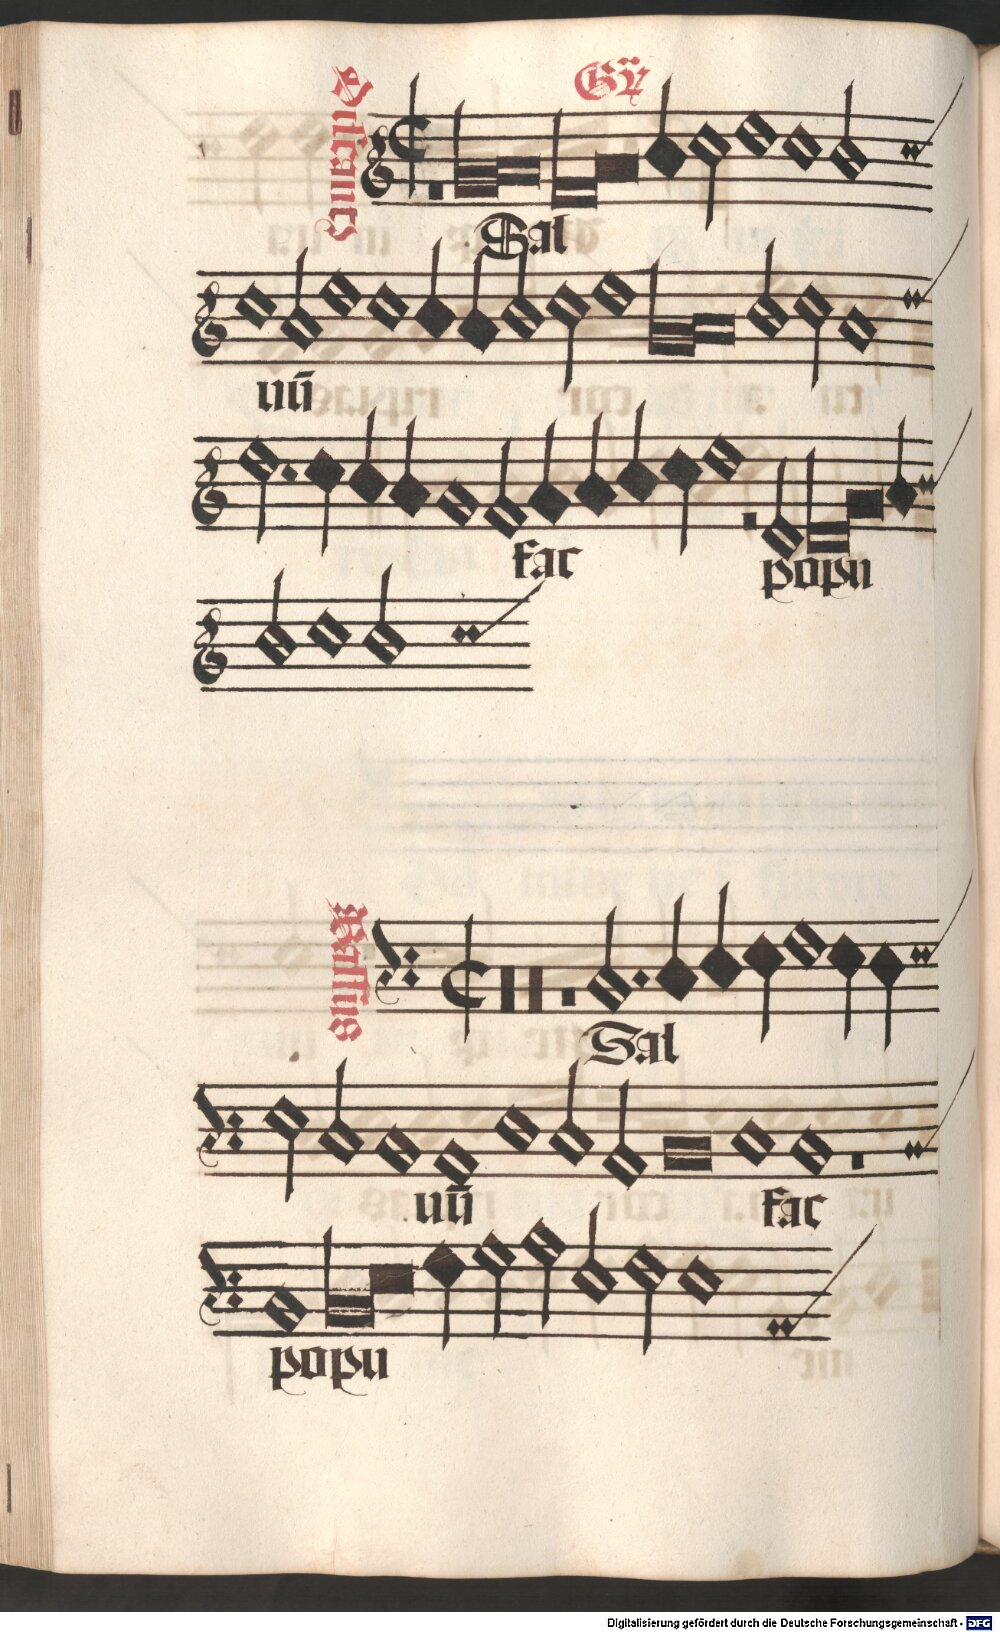 Discantus
Sal
uū
fac
popu
Bassus
Sal
uū
fac
popu
Digitalisierung gefördert durch die Deutsche Forschungsgemeinschaft - DFG